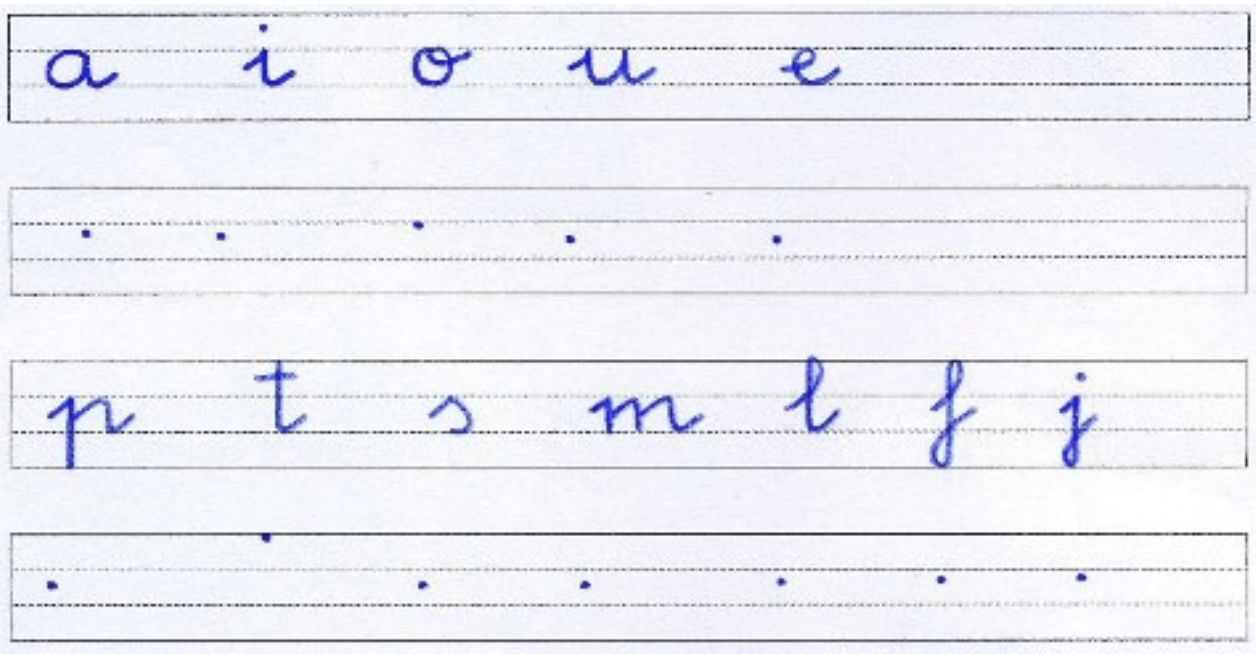 a i o u e
p t s m l f j